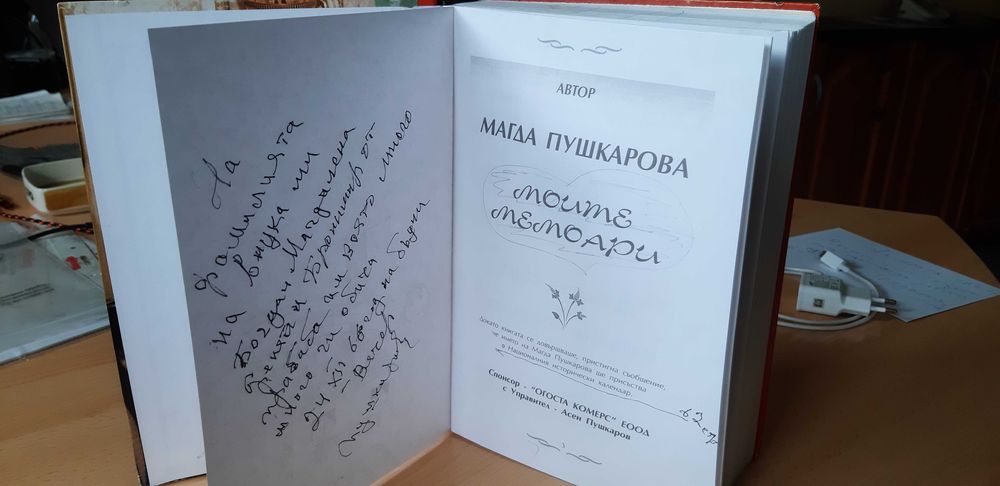 На
фамилията
на внука ми
Богдан Магдалена
Дениян и Бронимир от
прабаба им която много
много ги обича
24 XII бог 27
Вечер на бъдни
Пушкарова
АВТОР
МАГДА ПУШКАРОВА
МОИТЕ
МЕМОАРИ
Докато книгата се довършваше, пристигна съобщение,
че името на Магда Пушкарова ще присъства
в Националния исторически календар.
62 стр
Спонсор - "ОГОСТА КОМЕРС" ЕООД
с Управител - Асен Пушкаров